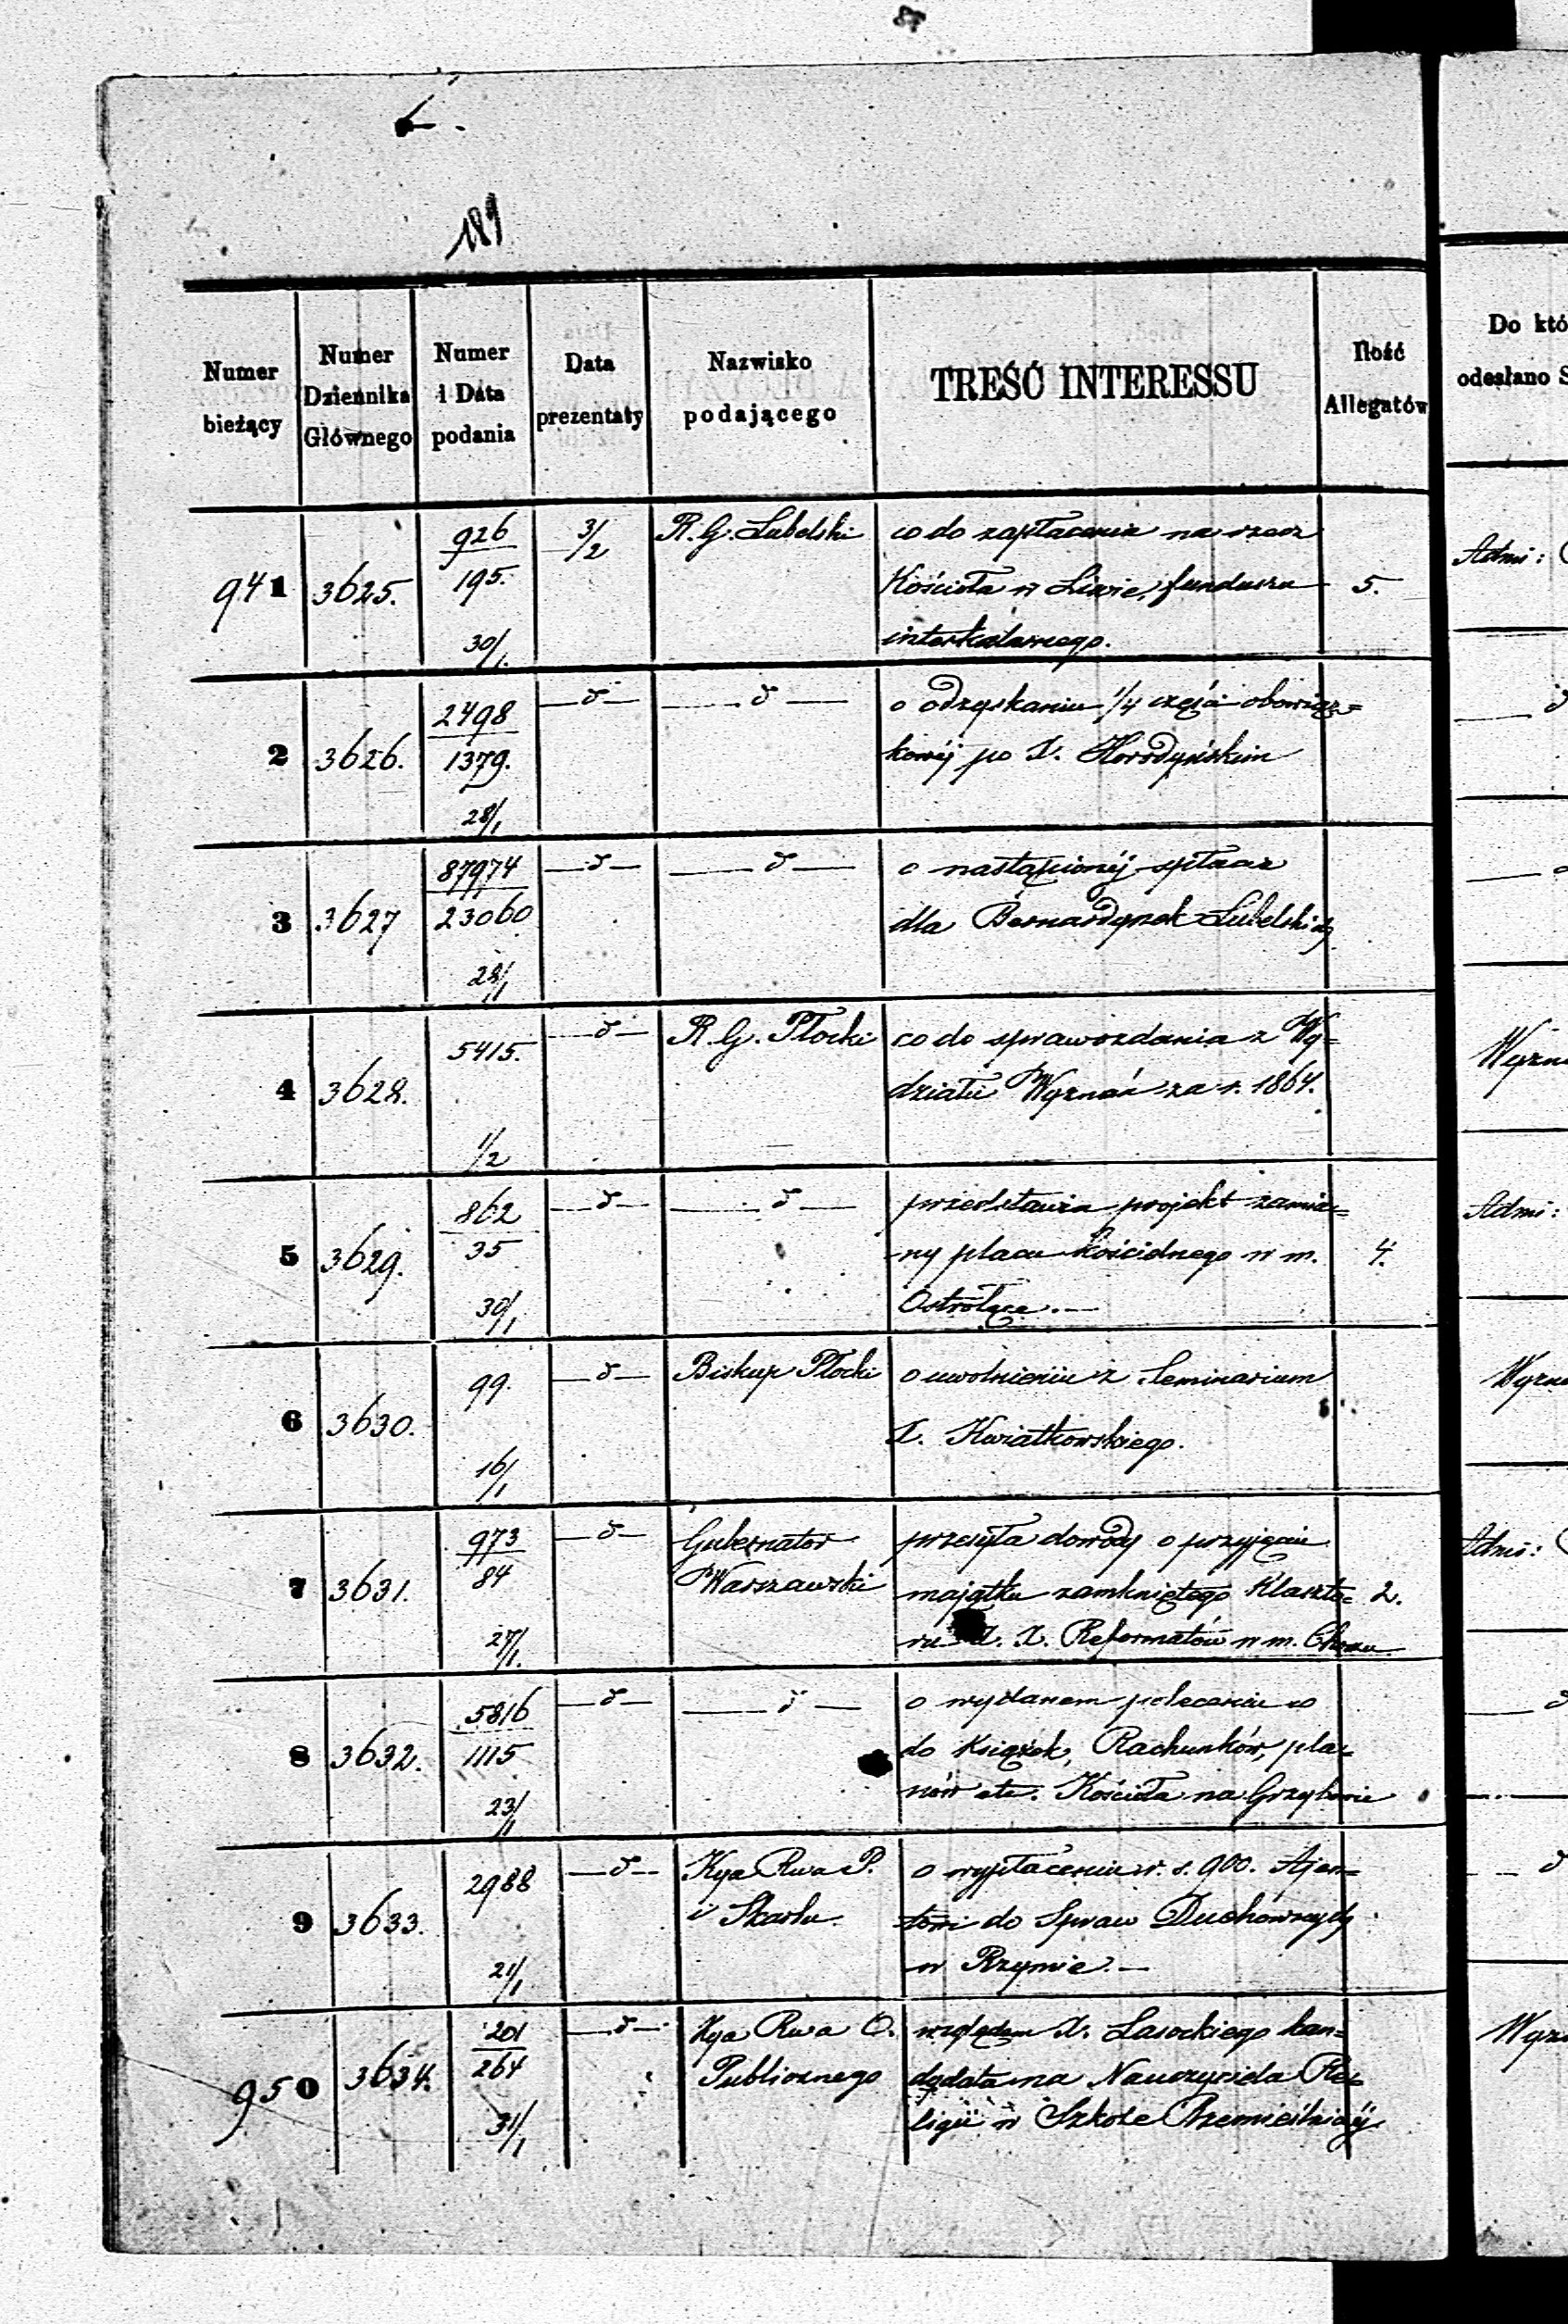 189
Numer bieżący
Numer Dziennika Głównego
Numer i Data podania
Data prezentaty
Nazwisko podającego
TREŚĆ INTERESSU
Ilość Allegatów
Do któ
odesłano S
941 3625. 926/195. 30/1. 3/2 R. G. Lubelski co do zapłacenia na rzecz
Kościoła w Liwie, funduszu 5. Admi:
interkalarnego.
2 3626. 2498/1379. 28/1 —d— —d— o odzyskaniu 1/4 części obowiąz=
kowéj po X. Horodyńskim
3 3627 87974/23060 28/1 —d— —d— o nastąpionéj spłacie
dla Bernardynek Lubelskich
4 3628. 5415. 1/2 —d— R. G. Płocki co do sprawozdania z Wy=
działu Wyznań za r. 1864. Wyzn
5 3629. 862/35 30/1 —d— —d— przedstawia projekt zamia=
ny placu Kościelnego w m. 4. Admi:
Ostrołęce.—
6 3630. 99. 16/1 —d— Biskup Płocki o uwolnieniu z Seminarium
X. Kwiatkowskiego. Wyzn
7 3631. 973/84 27/1. —d— Gubernator Warszawski przesyła dowody o przyjęciu
majątku zamkniętego Klaszto= 2. Admi:
ru X. X. Reformatów w m.
8 3632. 5816/1115 23/1 —d— —d— o wydanem poleceniu co
do Książek, Rachunków, pla=
nów etc. Kościoła na Grzybowie
9 3633. 2988 21/1 —d— Kya Rwa P. i Skarbu o wypłaceniu r. s. 900. Ajen=
towi do Spraw Duchownych
w Rzymie.—
950 3634. 201/264 31/1 —d— Kya Rwa O. Publicznego względem X. Lasockiego kan=
dydata na Nauczyciela Re=
ligii w Szkole Rzemieślniczéj Wyz